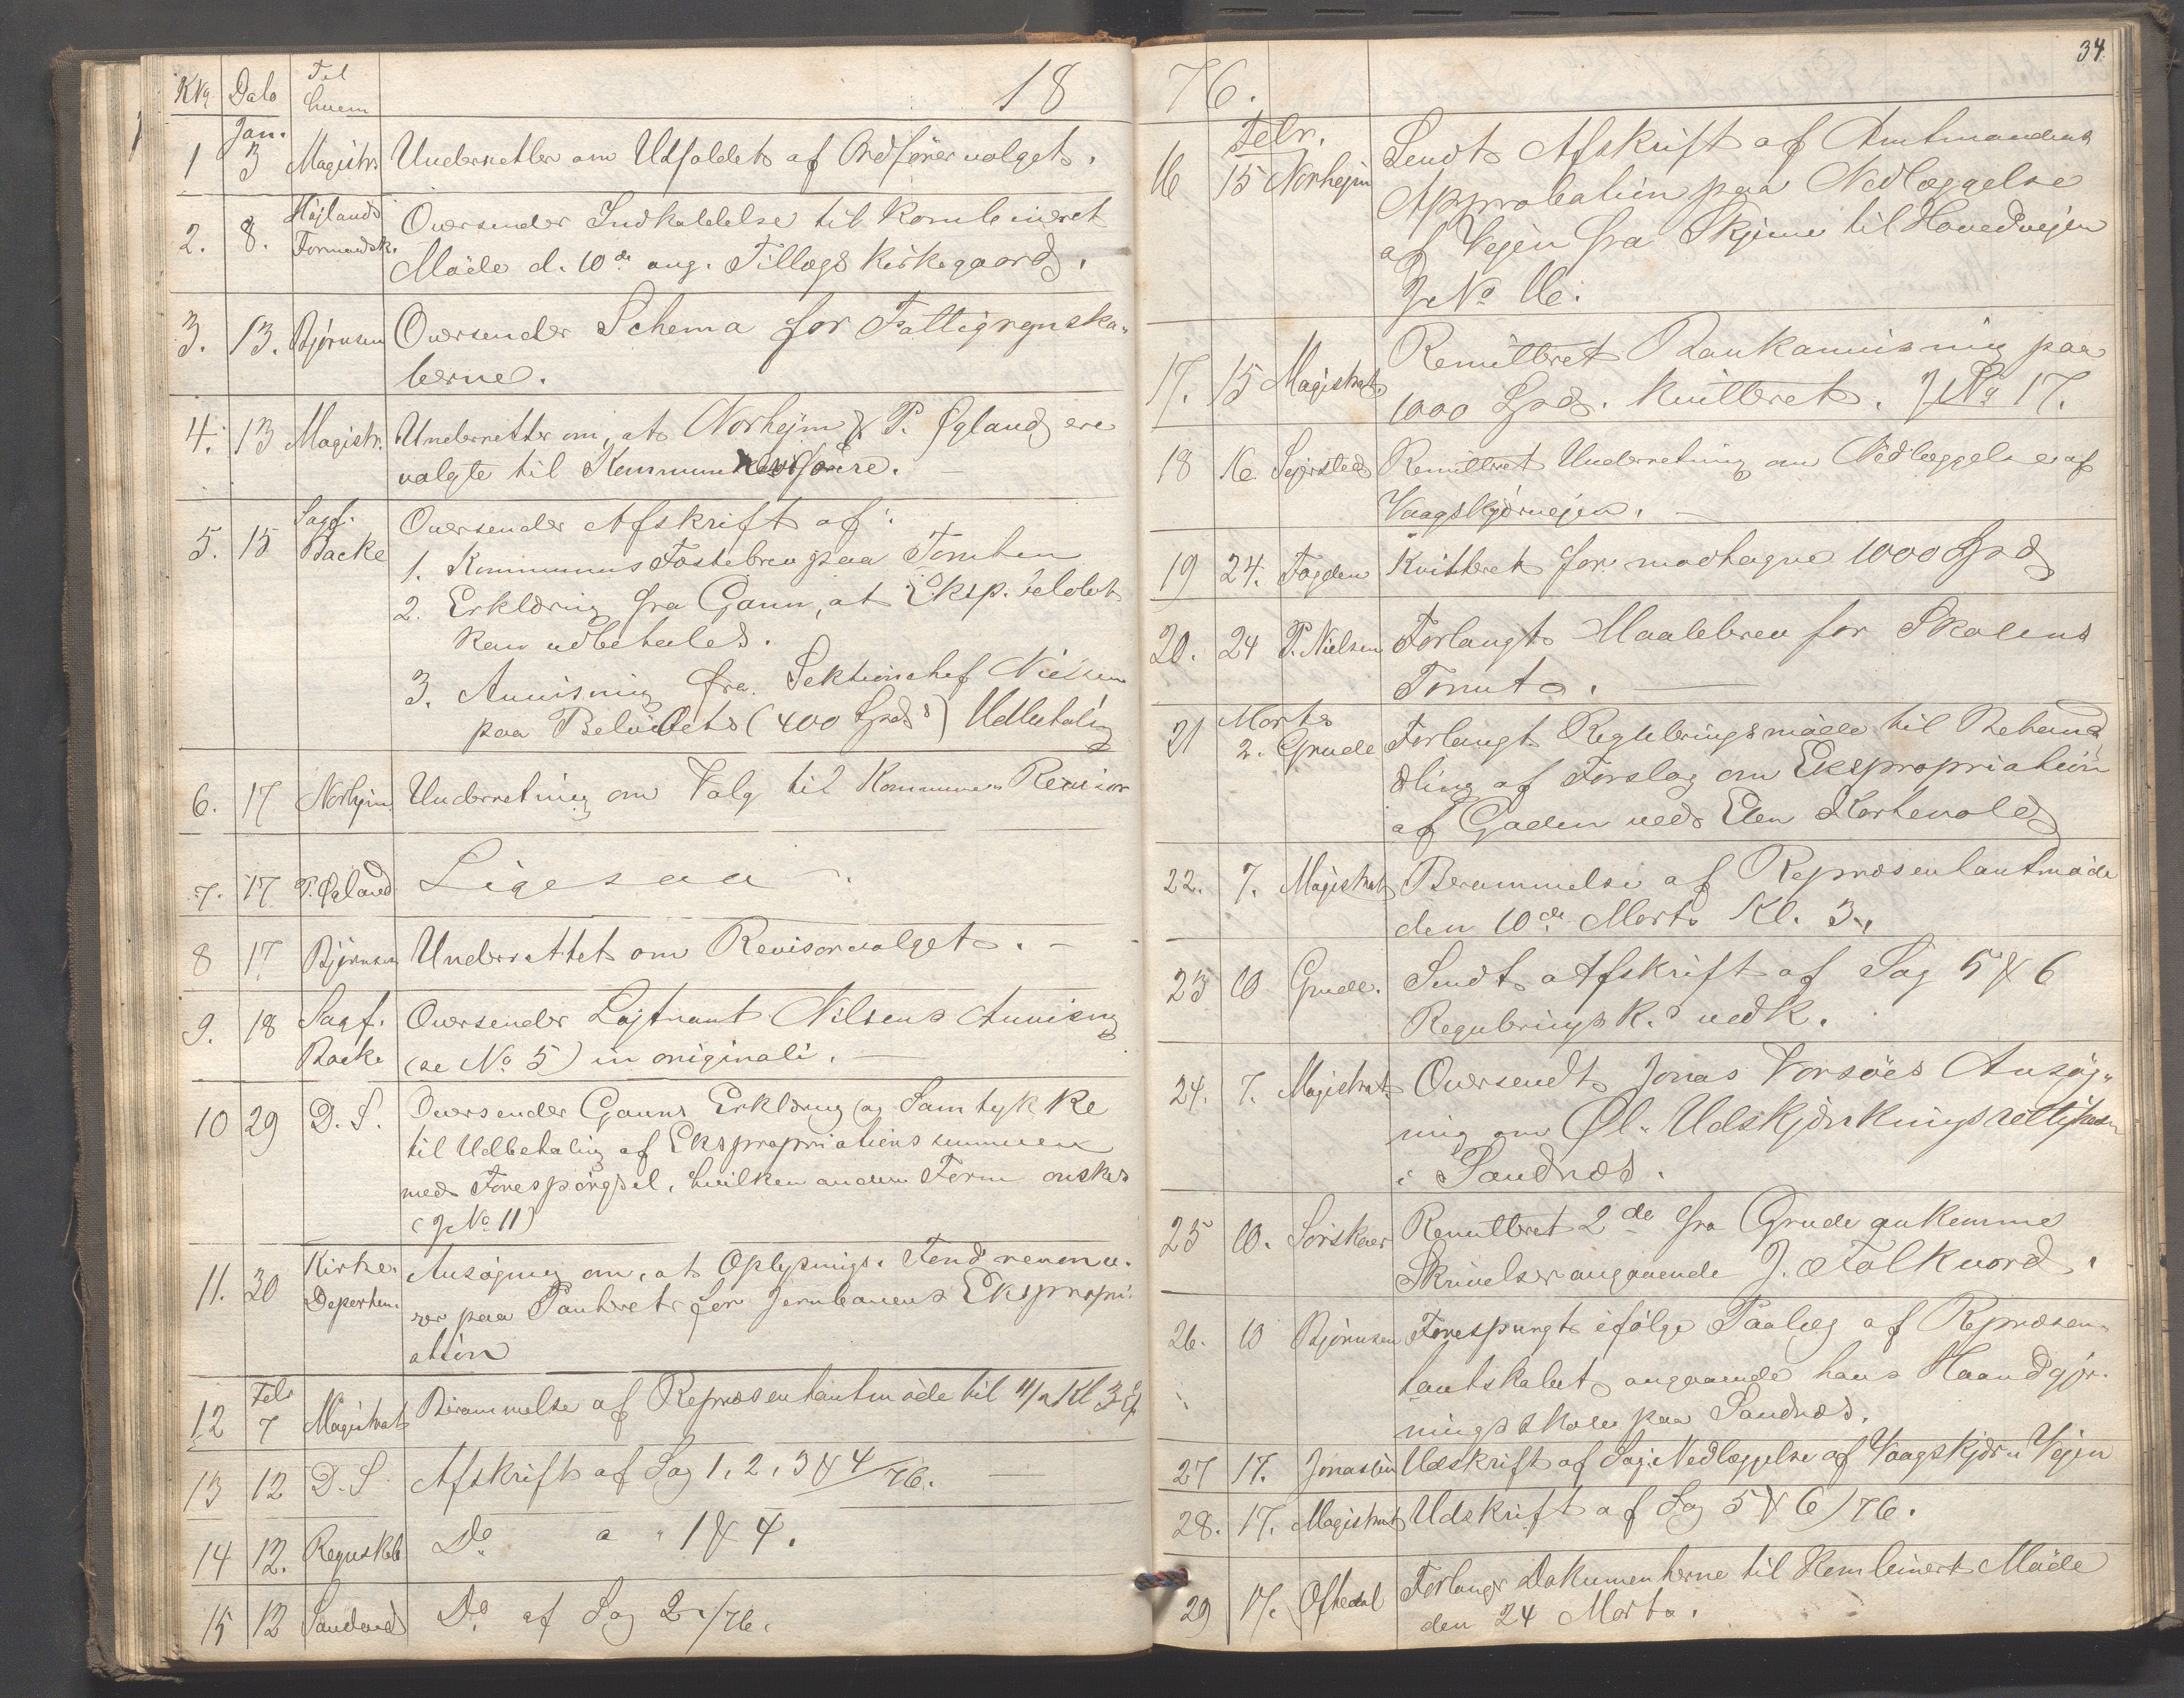 KNo Dato Til hvem 18
Jan.
1 3 Magistr. Underretter om Udfaldet af Ordförervalget.
2. 8. Höjlands Formandsk. Oversender Indkaldelse til kombineret
Möde d. 10de ang. Tillægs kirkegaard.
3. 13. Bjørnsen Oversender Schema for Fattigregnska-
berne.
4. 13 Magistr. Underretter om, at Norhejm & P. Øgland ere
valgte til Kommunerevisorere. —
5. 15 Sagf. Backe Oversender Afskrift af:
1. Kommunens Fæstebrev paa Tomten
2. Erklæring fra Gann, at Eksp. belöbet
kan udbetales.
3. Anvisning fra Sektionschef Nielsen
paa Belöbets (400 Spd) Udbetaling
6. 17 Norhejm Underretning om Valg til Kommune Revisor
7. 17 P. Øgland Ligesaa —.
8 17 Bjørnsen Underrettet om Revisorvalget. —
9. 18 Sagf. Backe Oversender Løjtnant Nilsens Anvisning
(se No 5) in originali. —
10 29 D. S. Oversender Ganns Erklæring og Samtykke
til Udbetaling af Ekspropriationssummen
med Forespörgsel, hvilken anden Form önskes
(J No 11)
11. 30 Kirke Departem. Ansögning om, at Oplysnings. Fond renonce-
rer paa Panteret for Jernbanens Ekspropri-
ation
Feb
12 7 Magistrat Berammelse af Repræsentantmöde til 11/2 Kl 3 Ef
13 12 D. S. Afskrift af Sag 1, 2, 3 & 4/76. —
14 12. Regnskab Do a " 1 & 4.
15 12 Do af Sag 2/76.
76. 34.
Febr.
16 15 Norhejm Sendt Afskrift af Amtmandens
Approbation paa Nedlæggelse
af Vejen fra Skjene til Hovedvejen
J No 16.
17. 15 Magistrat Remitteret Bankanvisning paa
1000 Spd. kvitteret. J No 17.
18 16 Sejersted Remitteret Underretning om Nedlæggelse af
Vaagskjærvejen. —
19 24. Fogden Kvitteret for modtagne 1000 Spd
20. 24 P. Nielsen Forlangt Maalebrev for Skolens
Tomt. —
Marts
21 2. Grude Forlangt Reguleringsmöde til Behand-
dling af Forslag om Ekspropriation
af Gaden ved Elen Kortevold
22. 7. Magistrat Berammelse af Repræsentantmöde
den 10de Marts Kl. 3.
23 10 Grude. Sendt Afskrift af Sag 5 & 6
Regulerings K. vedk.
24. 7. Magistrat Oversendt Jonas Vorsöes Ansög-
ning om Øl-Udskjænkningsrettigheden
i Sandnæs.
25 10. Sörskaar Remitteret 2de fra Grude ankomne
Skrivelser angaaende J. Folkvord.
26. 10 Bjørnsen Forespurgt ifölge Paalæg af Repræsen-
tantskabet angaaende hans Haandgjer-
ningsskole paa Sandnæs.
27 17. Jonassen Udskrift af Sag: Nedlæggelse af Vaagskjær Vejen
28. 17. Magistrat Udskrift af Sag 5 & 6/76.
29 17. Oftedal Forlangt Dokumenterne til Kombineret Möde
den 24 Marts.